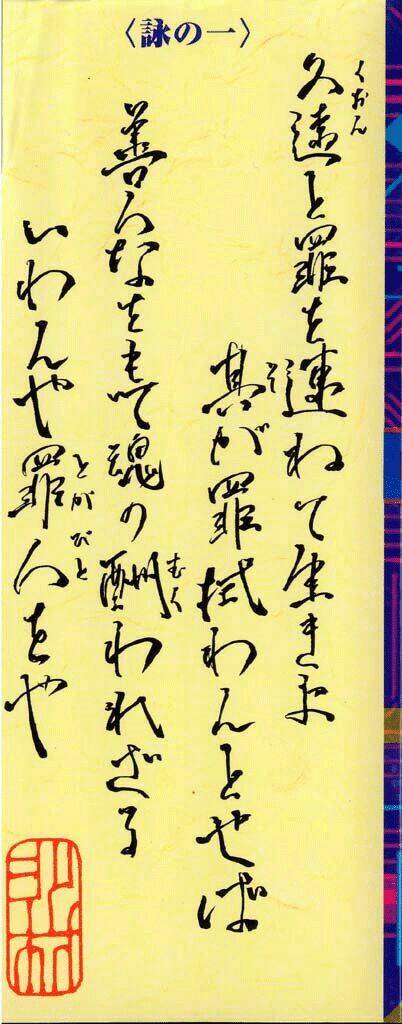 〈詠の一〉
久遠と罪を連ねて生きよ
其が罪拭わんとせば
善人なをもて魂の酬われざる
いわんや罪人をや
くおん
そ
むく
とがびと